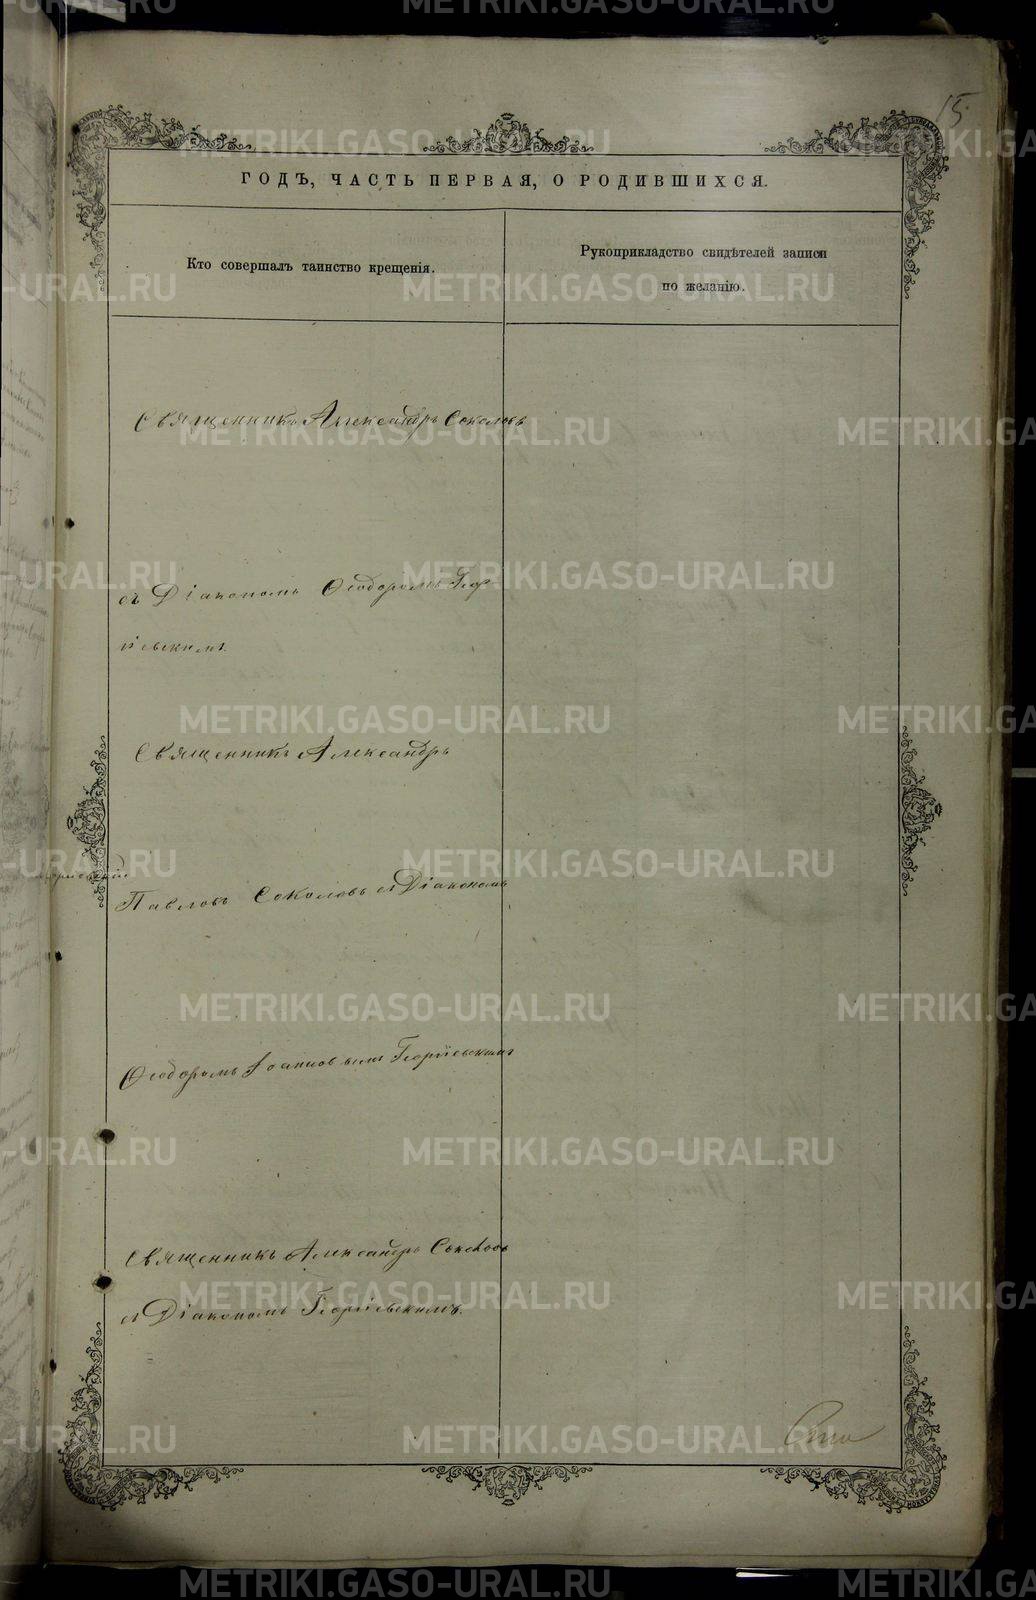 15.
ГОДЪ, ЧАСТЬ ПЕРВАЯ, О РОДИВШИХСЯ.
Кто совершалъ таинство крещенія.
Рукоприкладство свидѣтелей записи
по желанію.
Священникъ Александръ Соколовъ
съ Діакономъ Ѳеодоромъ Геор-
гіевскимъ.
Священникъ Александръ
Павловъ Соколовъ съ Діакономъ
Ѳеодоромъ Іоанновымъ Георгіевскимъ
Священникъ Александръ Соколовъ
съ Діакономъ Георгіевскимъ.
METRIKI.GASO-URAL.RU